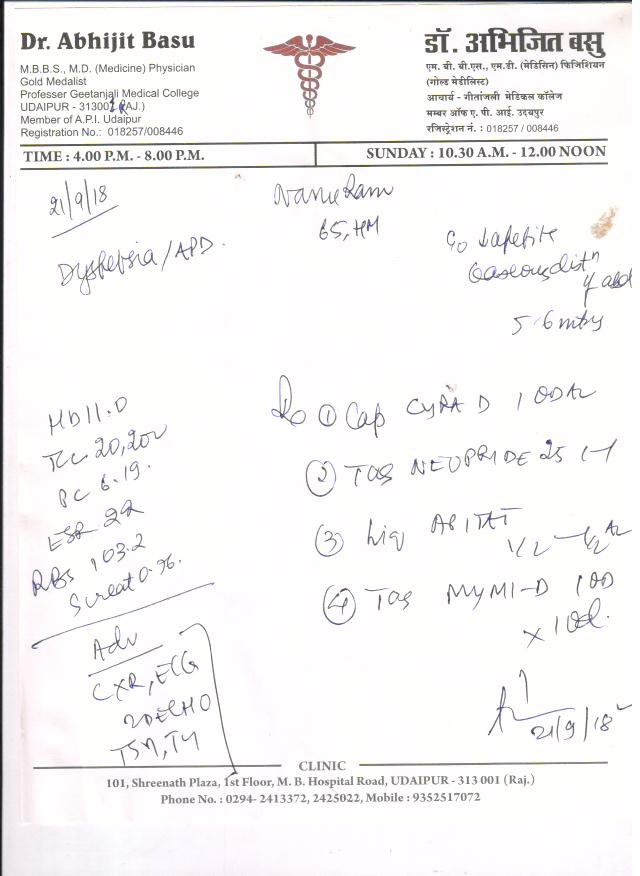 Dr. Abhijit Basu
M.B.B.S., M.D. (Medicine) Physician
Gold Medalist
Professer Geetanjali Medical College
UDAIPUR - 313001 (RAJ.)
Member of A.P.I. Udaipur
Registration No.: 018257/008446
डॉ. अभिजित बसु
एम. बी. बी.एस., एम.डी. (मेडिसिन) फिजिशियन
(गोल्ड मेडीलिस्ट)
आचार्य - गीतांजली मेडिकल कॉलेज
मम्बर ऑफ ए. पी. आई. उदयपुर
रजिस्ट्रेशन नं. : 018257 / 008446
TIME : 4.00 P.M. - 8.00 P.M.
SUNDAY : 10.30 A.M. - 12.00 NOON
21/9/18
65, HM
Dyspepsia/APD.
Gaseous distn
of abd
5-6 mths
HB 11.0
TLC 20,200
PC 6.19.
ESR 22
RBS 103.2
S creat 0.96.
Adv
CXR, ECG
2DECHO
TSH, T4
Rx ① Cap CYRA D 1 OD AC
② TAB NEOPRIDE 25 1-1
③ Liq APITAT
1/2 - 1/2 AC
④ TAB MYMI-D 1 OD
x 10d.
21/9/18
CLINIC
101, Shreenath Plaza, 1st Floor, M. B. Hospital Road, UDAIPUR - 313 001 (Raj.)
Phone No. : 0294- 2413372, 2425022, Mobile : 9352517072